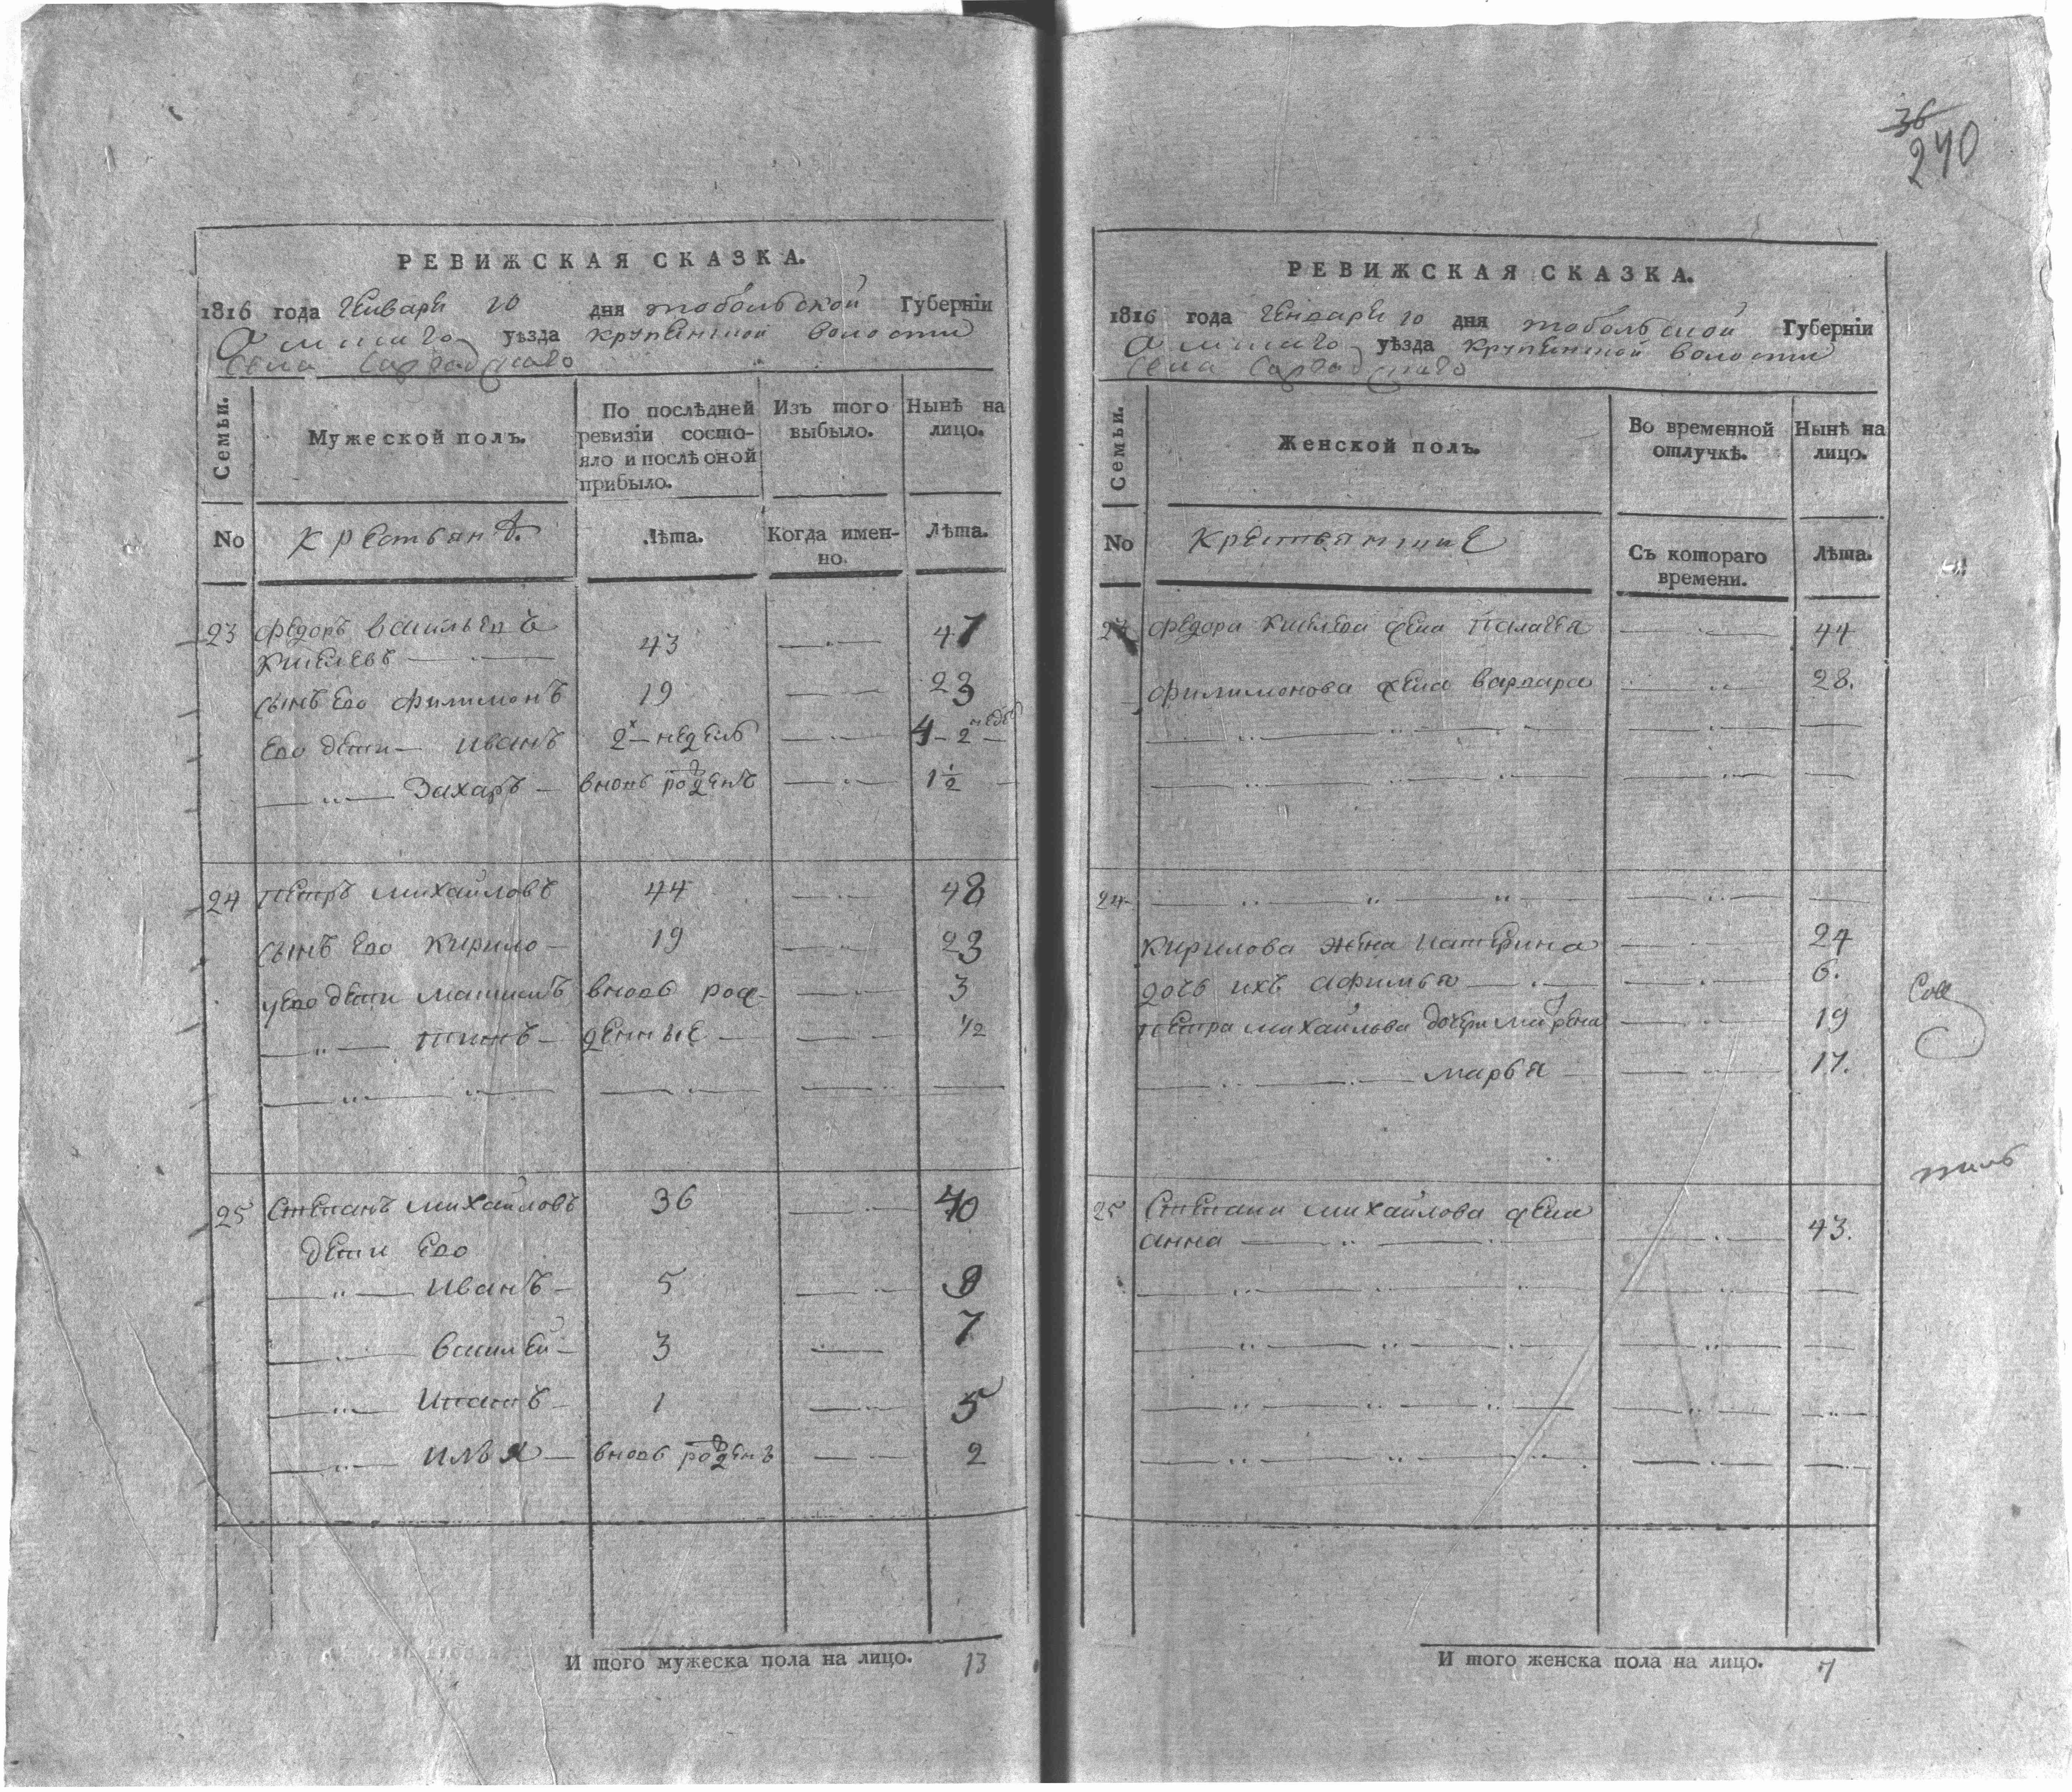 36
240
РЕВИЖСКАЯ СКАЗКА.
1816 года Генваря 10 дня тобольской Губерніи
Омшаго уѣзда крупенской волости
Села Саргадскаго
Семьи.
Мужеской полъ.
По послѣдней ревизіи состо-
яло и послѣ оной
прибыло.
Изъ того
выбыло.
Нынѣ на
лицо.
No
крестьянѣ.
Лѣта.
Когда имен-
но.
Лѣта.
23 Федоръ васильевъ
Киселевъ 43 47
сынъ Ево Филимонъ 19 23
Ево дети иванъ 2х недель 4 2 недѣ
Захаръ вновь рожденъ 1 1/2
24 Петръ михайловъ 44 48
сынъ Ево Кирило 19 23
уево дети вновь рож 3
денные 1/2
25 Степанъ михайловъ 36 40
дети Ево
Иванъ 5 9
василей 3 7
1 5
илья вновь рожденъ 2
И того мужеска пола на лицо. 13
РЕВИЖСКАЯ СКАЗКА.
1816 года Генваря 10 дня тобольской Губерніи
Омшаго уѣзда крупенской волости
Села Саргадскаго
Семьи.
Женской полъ.
Во временной
отлучкѣ.
Нынѣ на
лицо.
No
Крестьянские
Съ котораго
времени.
Лѣта.
23 Федора Киселева жена Палагея 44
Филимонова жена варвара 28.
24
Кирилова жена катерина 24
дочь ихъ Афимья 6.
Петра михайлова дочери 19
марья 17.
25 Степана михайлова жена
анна 43.
И того женска пола на лицо. 7